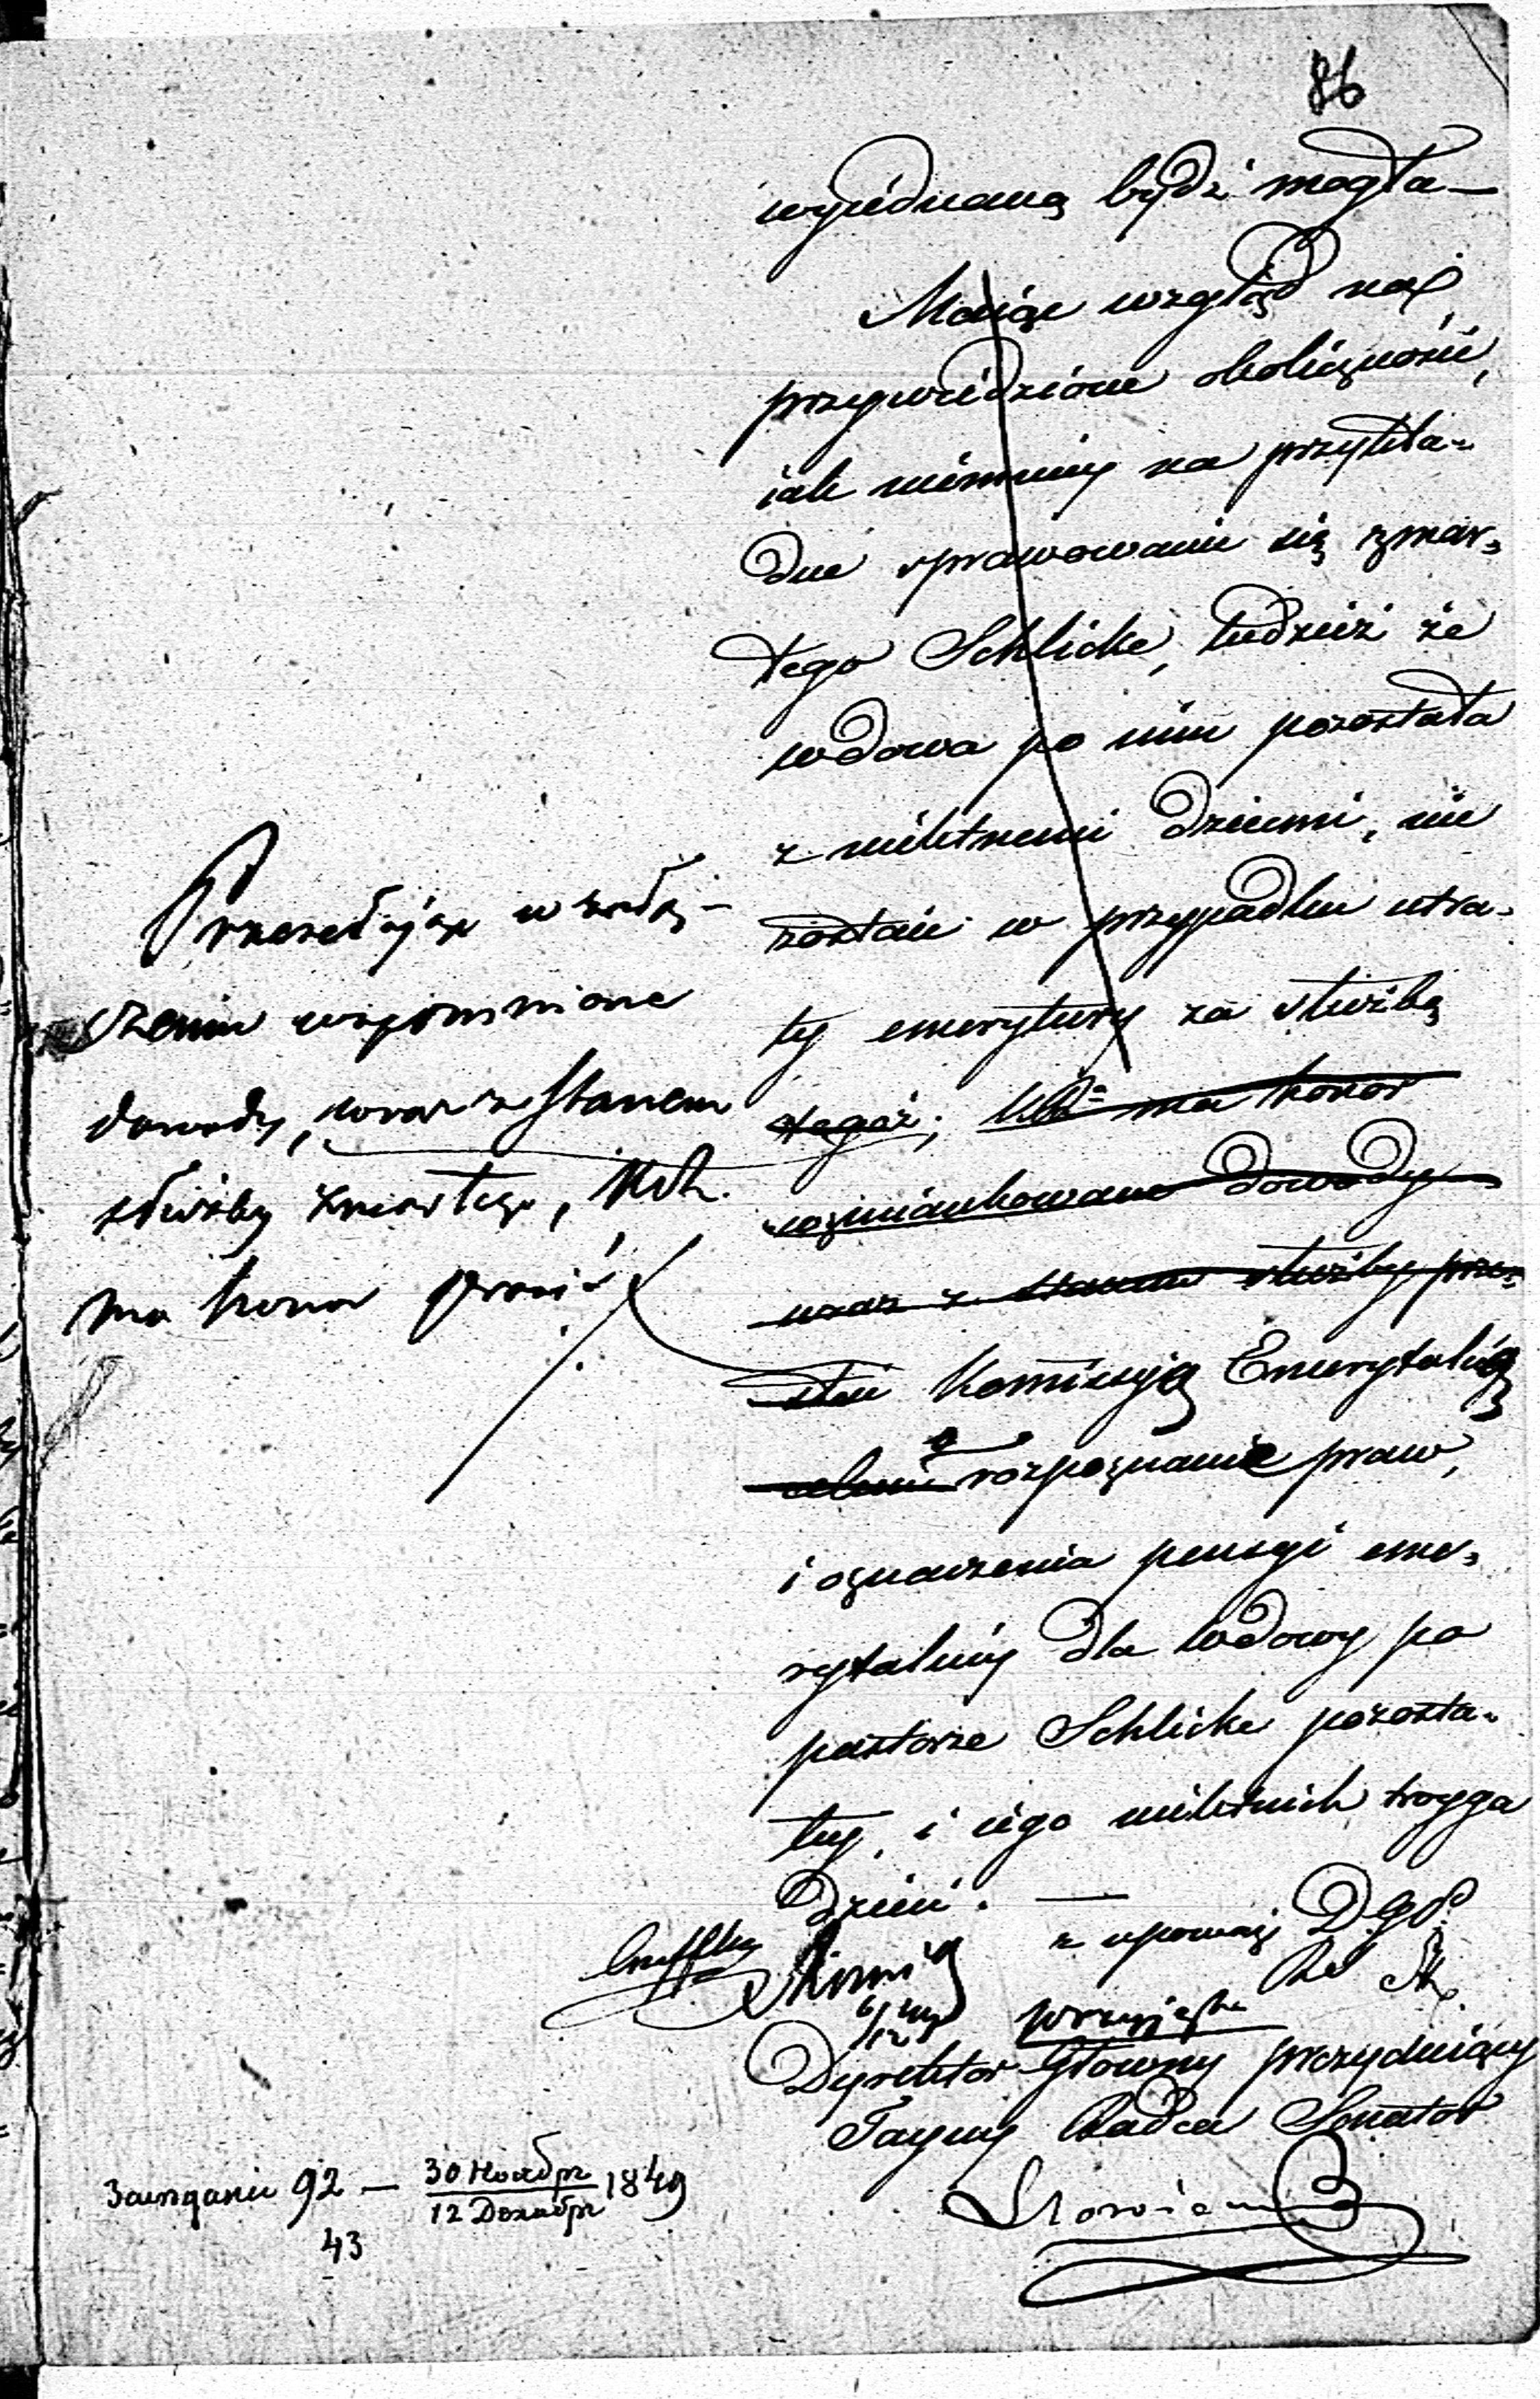 86
wyiednaną bydź mogła —
Maiąc wzgląd na
przywiedzione okoliczności,
iak niemniéy na przykła-
dne sprawowanie się zmar-
łego Schlicke, tudzież że
wdowa po nim pozostała
z nieletnemi dziećmi, nie
zostaie w przypadku utra-
ty emerytury za służbę
tegoż; KR. ma honor
wzmiankowane dowody
wraz z stanem służby prze-
słać Kommissyą Emerytalną
celem o rozpoznanie praw,
i oznaczenia pensyi eme-
rytalnéy dla wdowy po
pastorze Schlicke pozosta-
łéy, i iego nieletnich troyga
dzieci. —
Przesyłając w załą-
czeniu wspomnione
dowody, wraz z stanem
służby zmarłego, KR.
ma honor prosić
z upoważ D. G.
Dyrektor Główny prezyduiący
Tayny Radca Senator
92 — 30 Ноября / 12 Декабря 1849
43